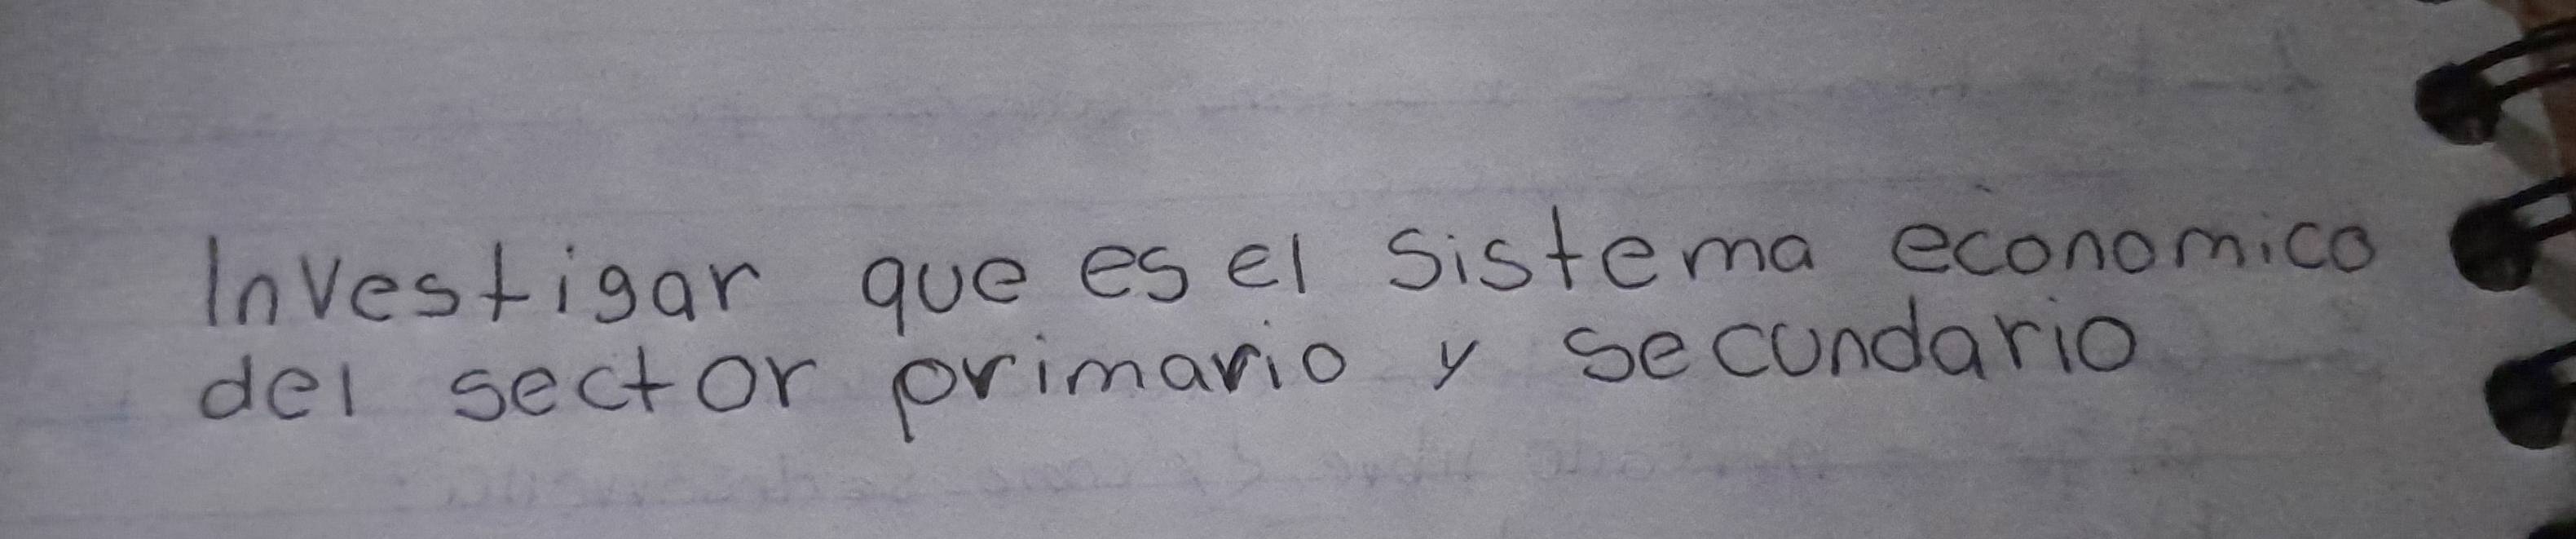 Investigar que es el sistema economico
del sector primario y secundario